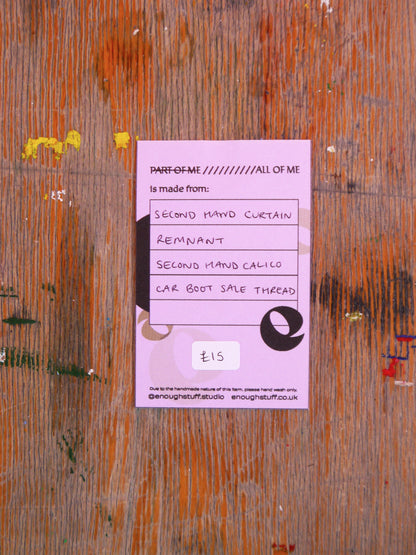 PART OF ME ///////////ALL OF ME
is made from:
SECOND HAND CURTAIN
REMNANT
SECOND HAND CALICO
CAR BOOT SALE THREAD
£15
Due to the handmade nature of this item, please hand wash only.
@enoughstuff.studio enoughstuff.co.uk